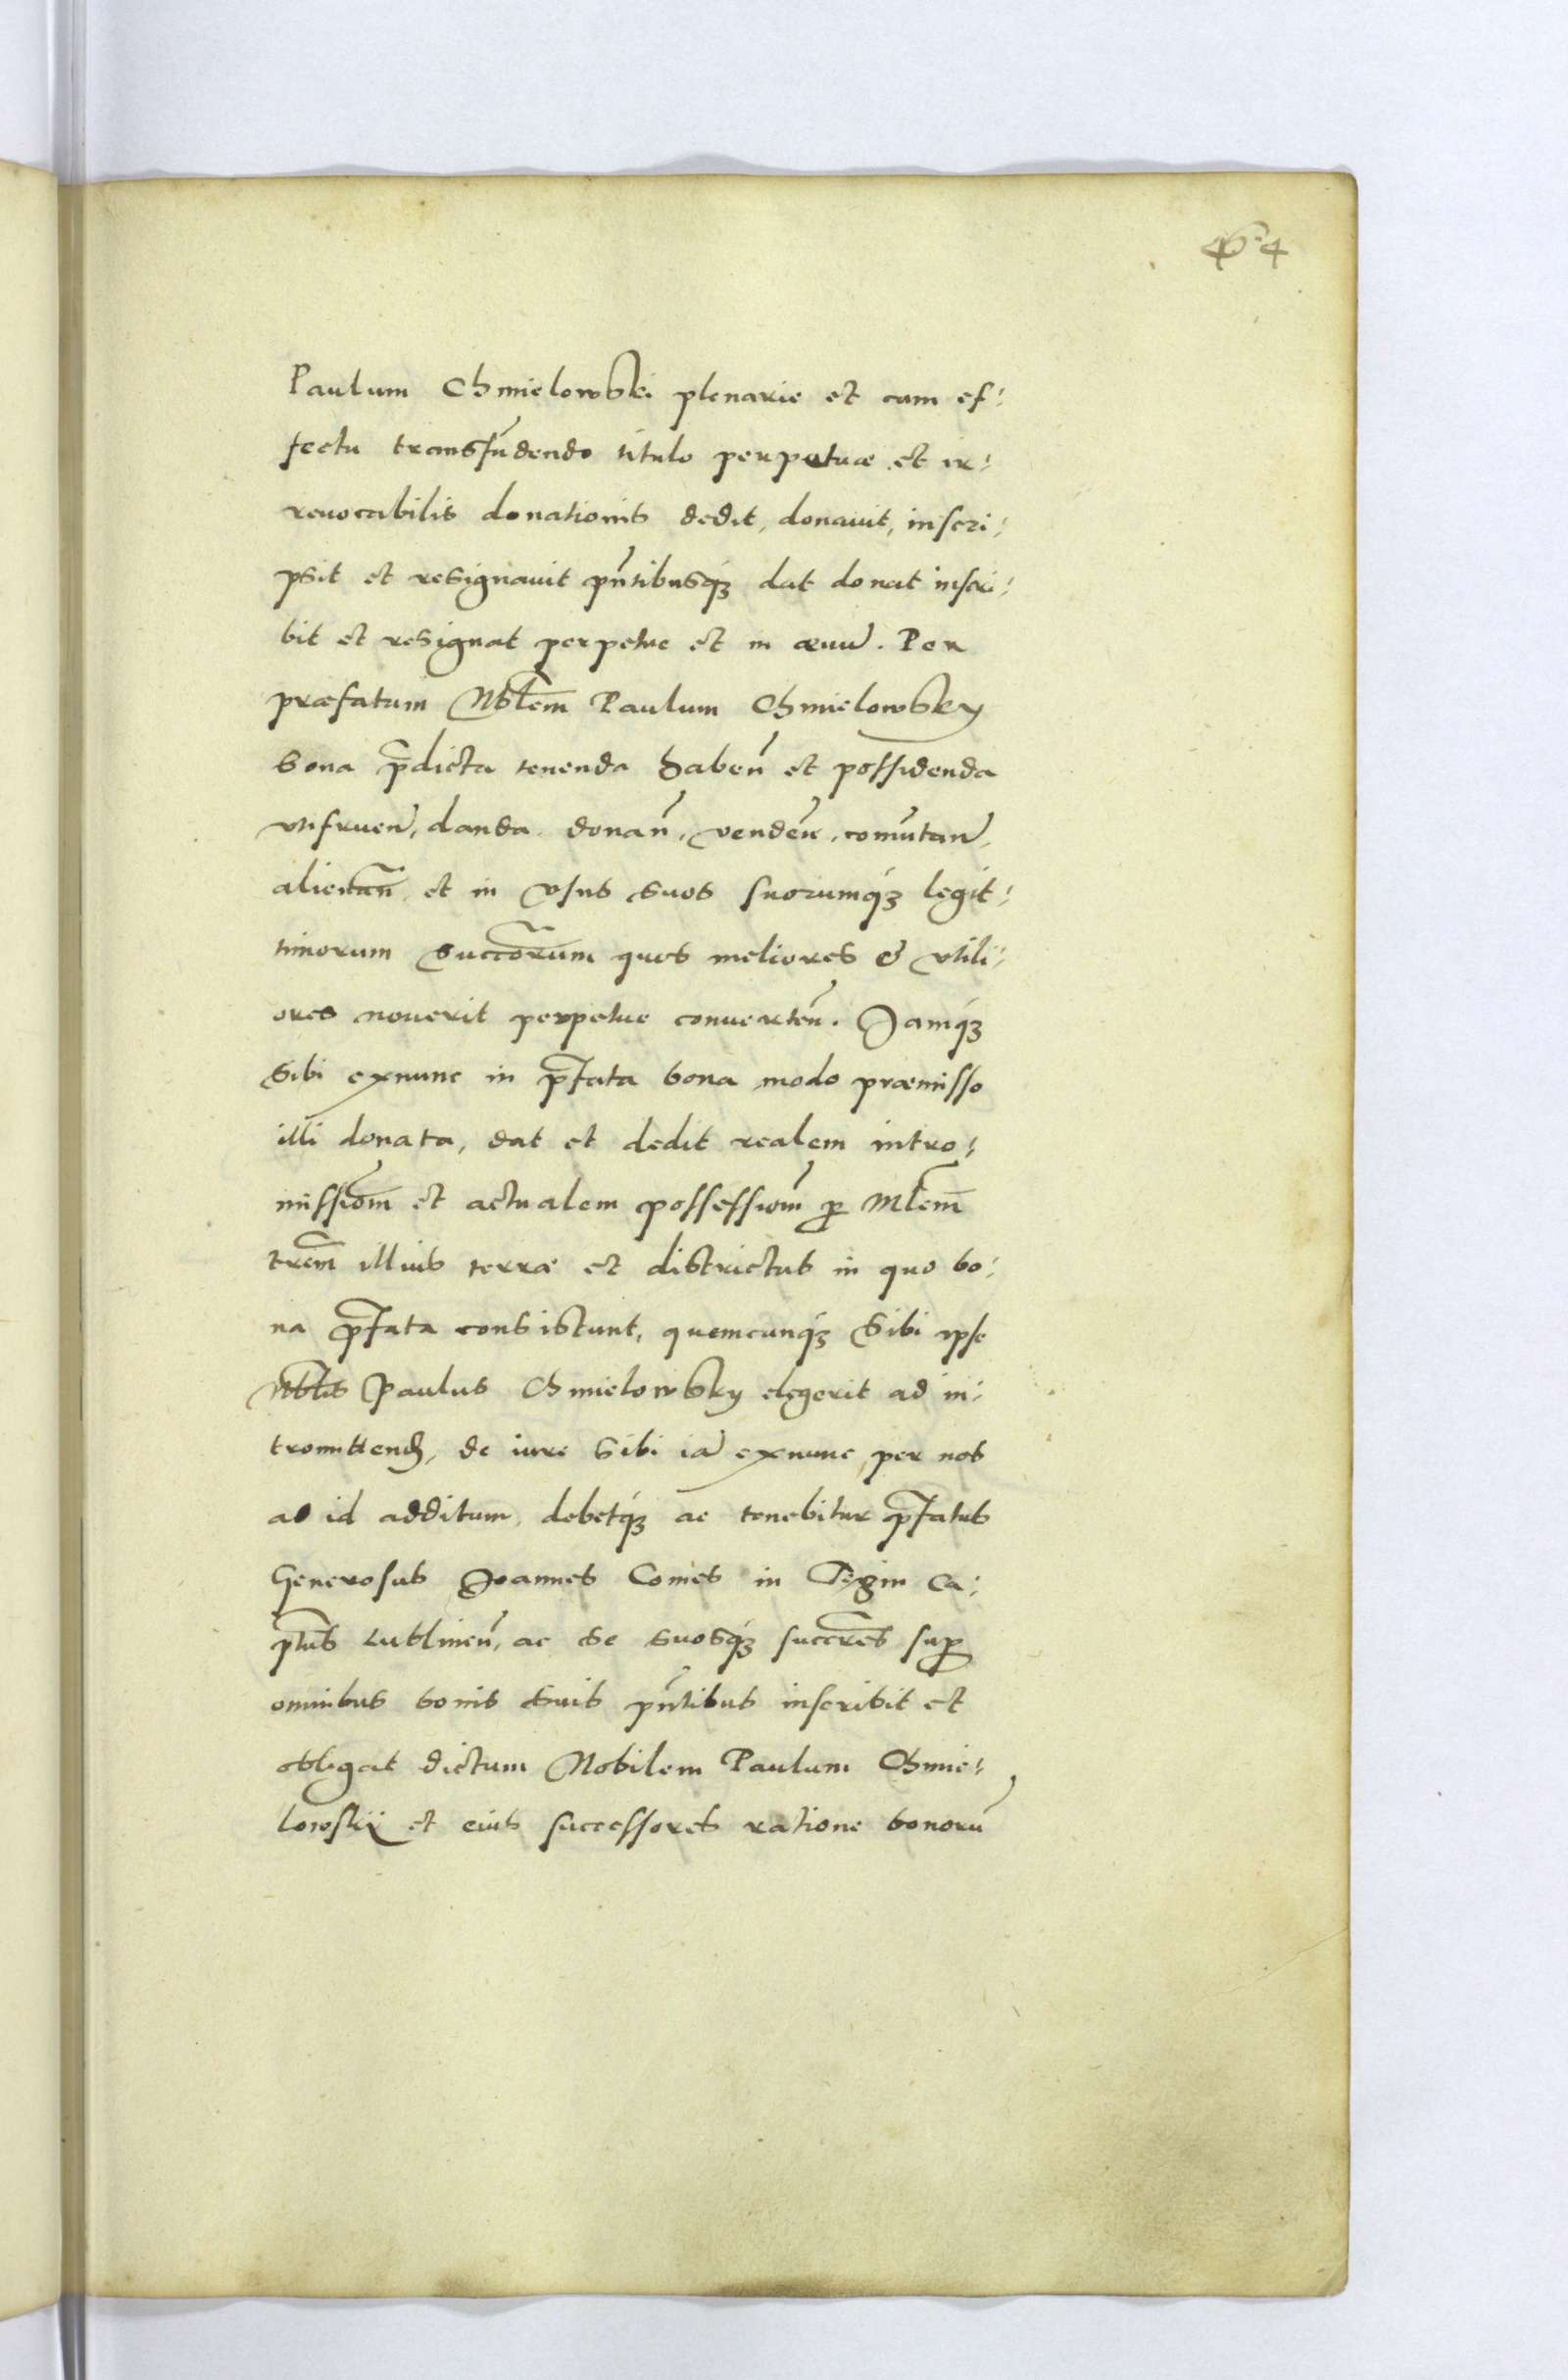 464
Paulum Chmielowski plenarie et cum ef:
fectu transfūdendo titulo perpetuæ et ir:
reuocabilis donationis dedit, donauit, inscri:
psit et resignauit pn̄tibusq₃ dat donat inscri:
bit et resignat perpetue et in æuū. Per
præfatum Nblem̄ Paulum Chmielowsky
bona p̄dicta tenenda haben̄ et possidenda
vtifruen̄, danda donan̄, venden̄, com̄utan̄,
alienan̄ et in vsus suos suorumq₃ legit:
timorum succorum̄ quos meliores & vtili:
ores nouerit perpetue conuerten̄. Iamq₃
sibi exnunc in p̄fata bona modo præmisso
illi donata, dat et dedit realem intro:
missiom̄ et actualem possessiom̄ ꝑ Mlem̄
trem̄ illius terræ et districtus in quo bo:
na p̄fata consistunt, quemcunq₃ sibi ipse
Nblis Paulus Chmielowsky elegerit ad in:
tromittend̄, de iure sibi iā exnunc per nos
ad id additum, debetq₃ ac tenebitur p̄fatus
Generosus Joannes Comes in Tęxin Ca:
ptus̄ Lublinen̄, ac se suosq₃ succres̄ suꝑ
omnibus bonis suis pn̄tibus inscribit et
obligat dictum Nobilem Paulum Chmie:
lowskij et eius successores ratione bonorū